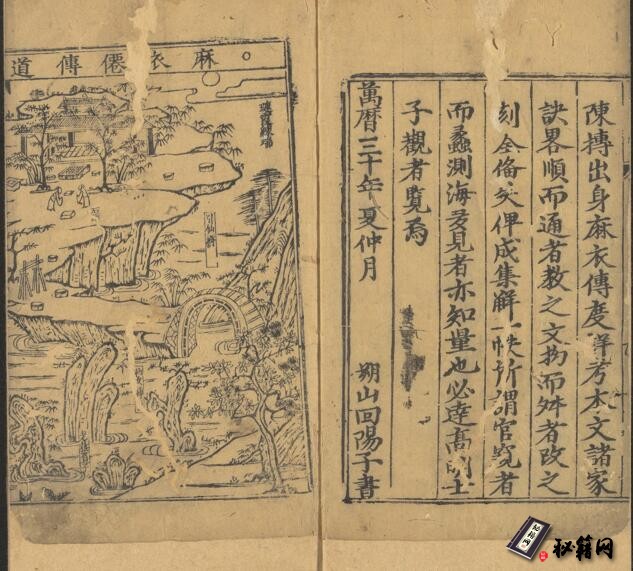 陳摶出身麻衣傳度詳考本文諸家
訣畧順而通者教之文拗而舛者改之
刻全俻矣俾成集解一帙所謂管窺者
而蠡測海多見者亦知量也必達高明士
子觀者覽焉
萬曆三十年夏仲月
朔山回陽子書
麻衣僊傳道
引仙橋
秘籍网